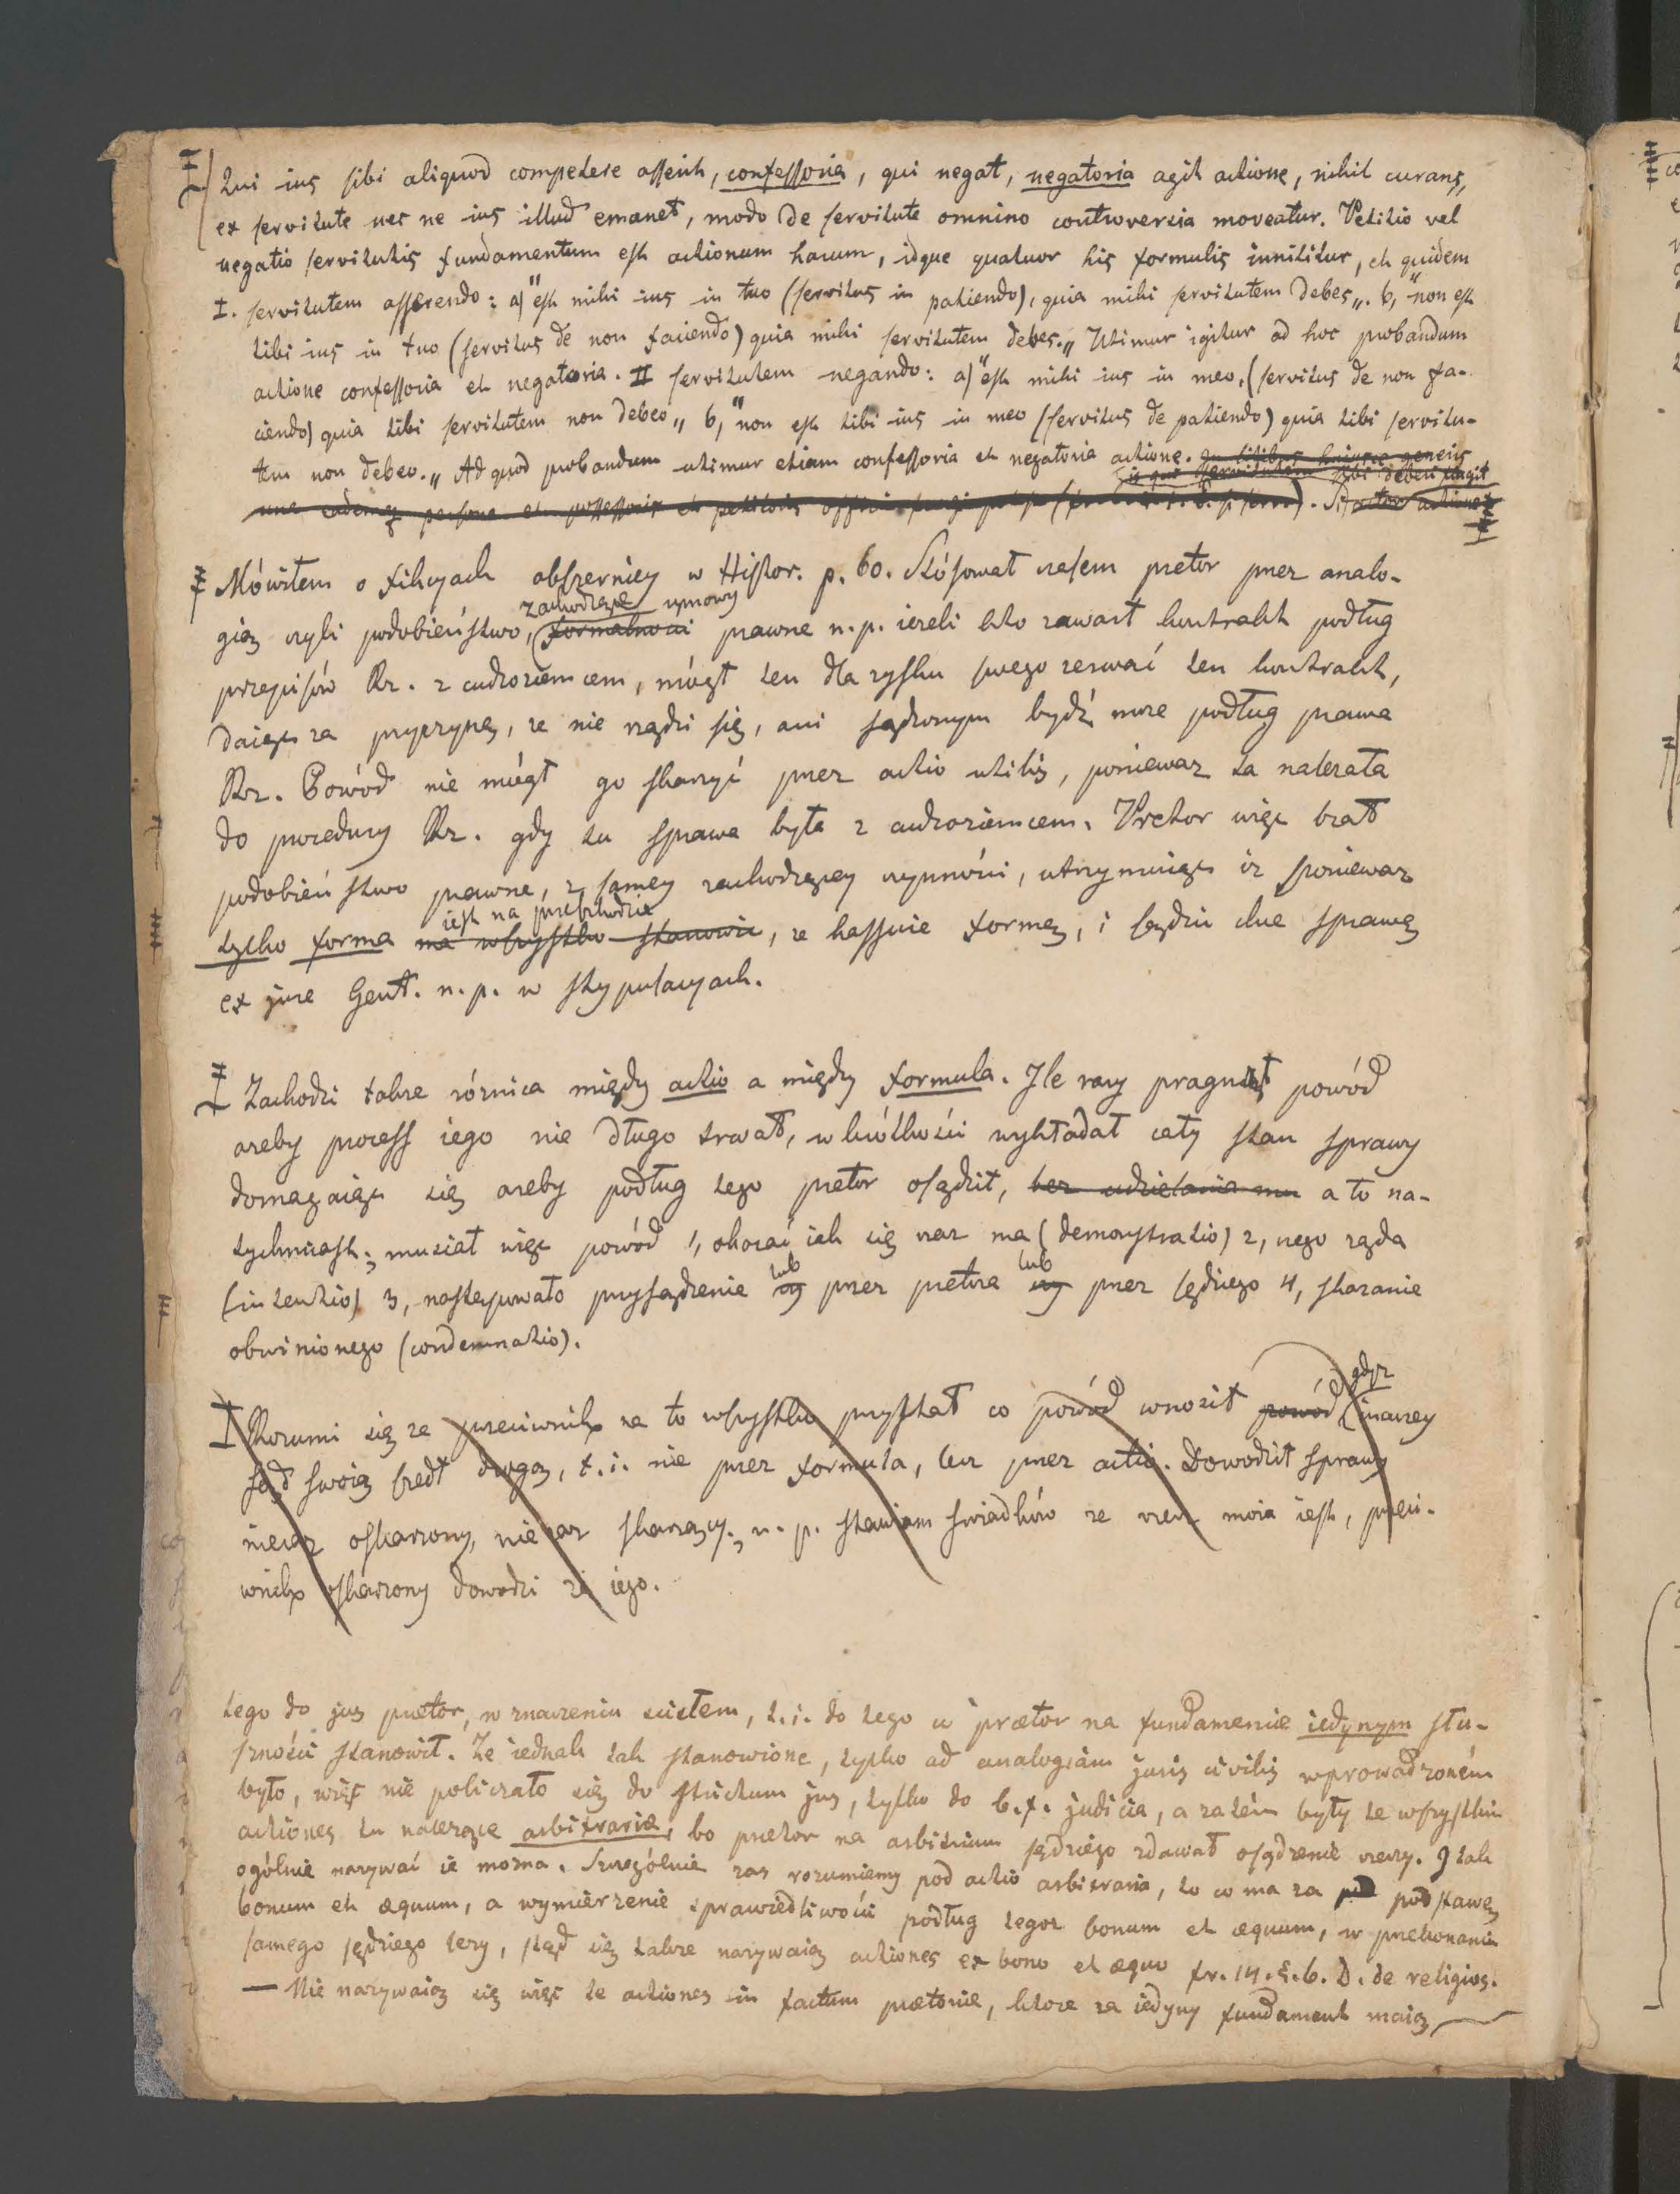 Qui ius sibi aliquod competere asserit, confessoria, qui negat, negatoria agit actione, nihil curans,
ex servitute nec ne ius illud emanet, modo de servitute omnino controversia moveatur. Petitio vel
negatio servitutis fundamentum est actionum harum, idque quatuor his formulis innititur, et quidem
I. servitutem asserendo: a) "est mihi ius in tuo (servitus in patiendo), quia mihi servitutem debes„. b, "non est
tibi ius in tuo (servitus de non faciendo) quia mihi servitutem debes.„ Utimur igitur ad hoc probandum
actione confessoria et negatoria. II servitutem negando: a) "est mihi ius in meo, (servitus de non fa-
ciendo) quia tibi servitutem non debeo„ b, "non est tibi ius in meo (servitus de patiendo) quia tibi servitu-
tem non debeo.„ Ad quod probandum utimur etiam confessoria et negatoria actione. In litibus huiusce generis
is qui servitutem sibi deberi
una eademq persona et possessoris et petitoris
Mówiłem o fikcyach obszerniey w Histor. p. 60. Stósował czasem pretor przez analo-
zachodzące umowy
gią czyli podobieństwo, formalności prawne n.p. ieżeli kto zawarł kontrakt podług
przepisów Rz. z cudzoziemcem, mógł ten dla zysku swego zerwać ten kontrakt,
daiąc za przyczynę, że nie rządzi się, ani sądzonym bydź może podług prawa
Rz. Powód nie mógł go skarżyć przez actio utilis, ponieważ ta należała
do procedury Rz. gdy tu sprawa była z cudzoziemcem. Pretor więc brał
podobieństwo prawne, z samey zachodzącey czynności, utrzymuiąc iż ponieważ
iest na przeszkodzie
tylko forma ma wszystko stanowić, że kassuie formę, i sądzić chce sprawę
ex jure Gent. n.p. w stypulacyach.
Zachodzi także różnica między actio a między formula. Ile razy pragnął powód
ażeby process iego nie długo trwał, w krótkości wykładał cały stan sprawy
domagaiąc się ażeby podług tego pretor osądził, bez udzielania mu a to na-
tychmiast; musiał więc powód 1, okazać jak się rzecz ma (demonstratio) 2, czego żąda
(intentio) 3, następowało przysądzenie czy lub przez pretora czy lub przez sędziego 4, skazanie
obwinionego (condemnatio).
Rozumi się że przeciwnik na to wszystko przystał co powód wnosił powód, gdyż inaczey
sąd swoią szedł drogą, t.i. nie przez formuła, lecz przez actio. Dowodził sprawy
nieraz oskarżony, nie zaś skarżący; n.p. stawiam świadków że rzecz moia iest, przeci-
wnik oskarżony dowodzi że iego.
tego do jus praetor, w znaczeniu ścisłem, t.i. do tego co prætor na fundamencie iedynym słu-
szności stanowił. Że iednak tak stanowione, tylko ad analogiam juris civilis wprowadzoném
było, więc nie policzało się do strictum jus, tylko do b.f. judicia, a zatém były te wszystkie
actiones tu należące arbitrariæ, bo pretor na arbitrium sędziego zdawał osądzenie rzeczy. I tak
ogólnie nazywać ie można. Szczególnie zaś rozumiemy pod actio arbitraria, to co ma za podstawę
bonum et æquum, a wymierzenie sprawiedliwości podług tegoż bonum et æquum, w przekonaniu
samego sędziego leży, stąd się także nazywaią actiones ex bono et æquo fr. 14. §. 6. D. de religios.
— Nie nazywaią się więc te actiones in factum prætoriæ, które za iedyny fundament maią